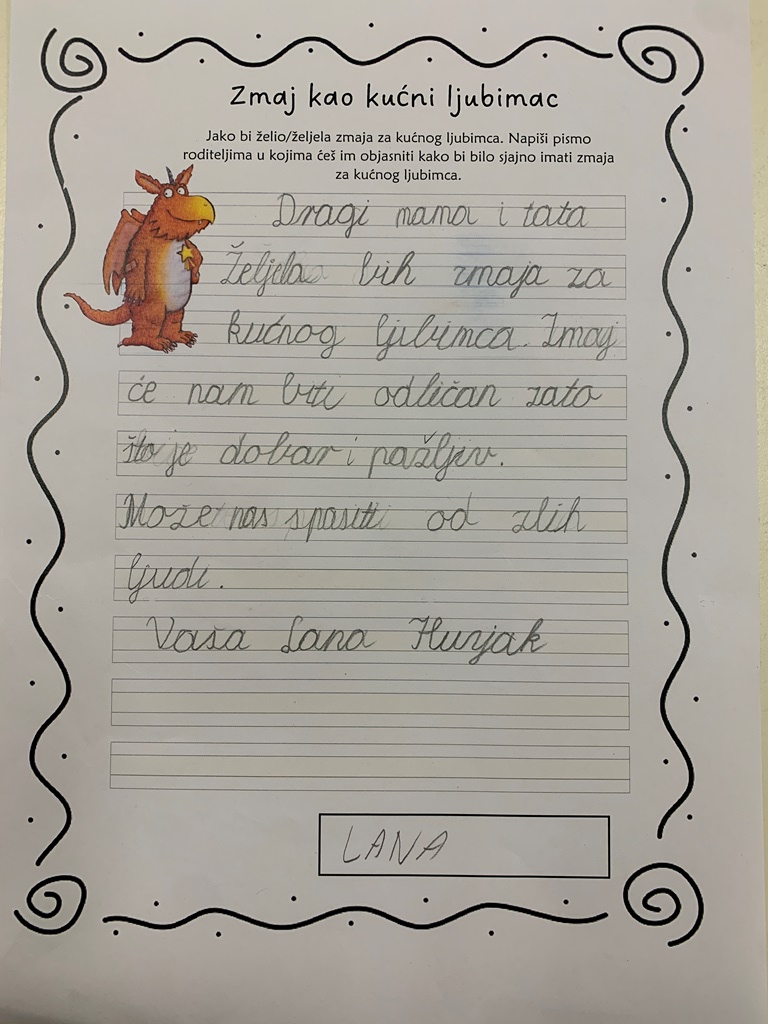 Zmaj kao kućni ljubimac
Jako bi želio/željela zmaja za kućnog ljubimca. Napiši pismo
roditeljima u kojima ćeš im objasniti kako bi bilo sjajno imati zmaja
za kućnog ljubimca.
Dragi mama i tata
Željela bih zmaja za
kućnog ljibimca. Zmaj
će nam biti odličan zato
što je dobar i pažljiv.
Može nas spasiti od zlih
ljudi.
Vaša Lana Hunjak
LANA